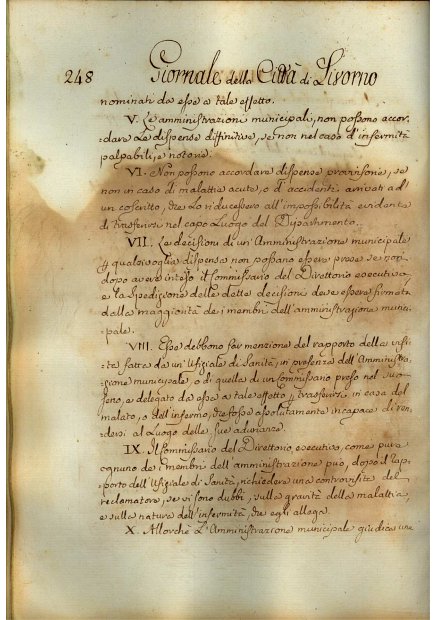 248 Giornale della Città di Livorno
nominati da esse a tale effetto.
V. Le amministrazioni municipali, non possono accor-
dare Le dispense diffinitive, se non nel caso d'infermità
palpabili, e notorie.
VI. Non possono accordare dispense provvisorie, se
non in caso di malattie acute, o d'accidenti arrivati ad
un coscritto, che Lo riducessero all'impossibilità evidente
di trasferirsi nel capo Luogo del Dipartimento.
VII. Le decisioni di un'Amministrazione municipale
p qualsivoglia dispensa non possano essere prese se non
dopo avere inteso il Commissario del Direttorio esecutivo,
e la spedizione delle dette decisioni deve essere firmata
dalla maggiorità dei membri dell'amministrazione muni-
pale.
VIII. Esse debbono far menzione del rapporto della visi-
ta fatta da un'Ufiziale di Sanità, in presenza dell'Amministra-
zione municipale, o di quella di un Commissario preso nel suo
seno, e delegato da essa a tale effetto p trasferirsi in casa del
malato, o dell'infermo, che fosse assolutamente incapace di ren-
dersi al Luogo delle sue adunanze.
IX. Il Commissario del Direttorio esecutivo, come pure
ognuno dei membri dell'amministrazione può, dopo il rap-
porto dell'Ufiziale di Sanità, richiedere una controvisita del
reclamatore, se vi sono dubbi, sulla gravità della malattia,
e sulla natura dell'infermità, che egli allega.
X. Allorchè L'Amministrazione municipale giudica una